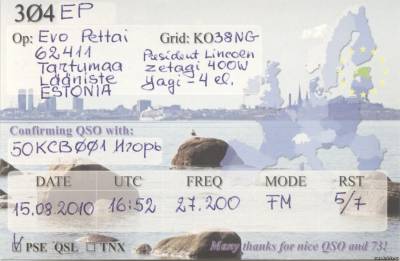 3Ø4EP
Op: Evo Pettai Grid: KO38NG
62411 President Lincoln
Tartumaa zetagi 400W
Lääniste yagi-4 el.
ESTONIA
Confirming QSO with:
50KCBØØ1 Игорь
DATE UTC FREQ MODE RST
15.08.2010 16:52 27.200 FM 5/7
☑ PSE QSL ☐ TNX Many thanks for nice QSO and 73!